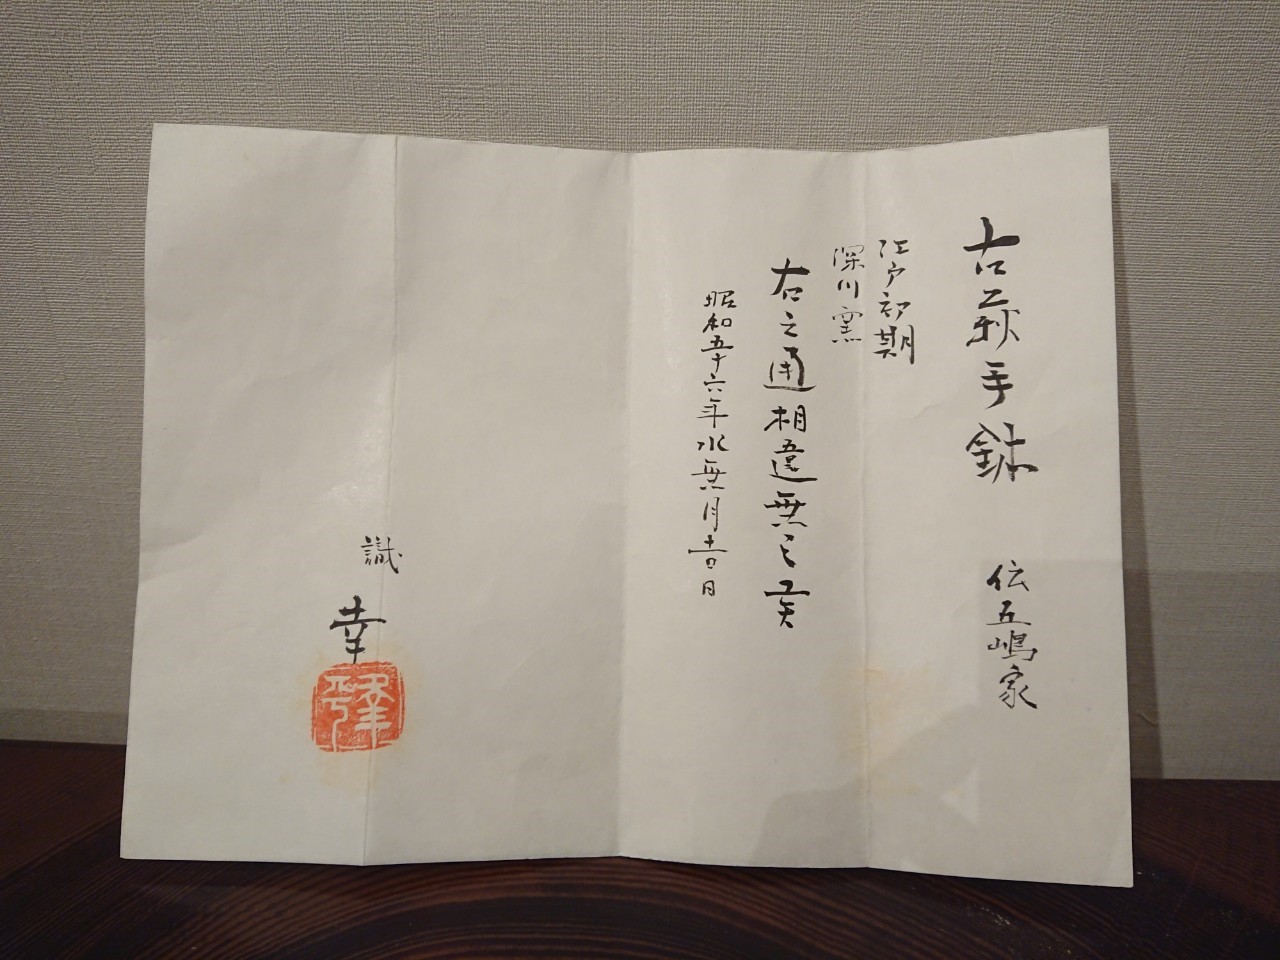 古萩手鉢 伝五嶋家
江戸初期
深川窯
右之通相違無之候
昭和五十六年水無月十一日
識
幸